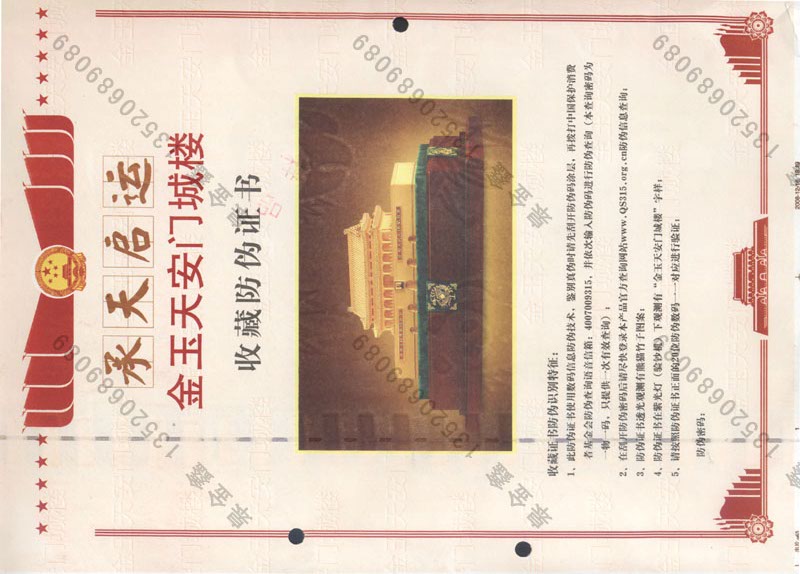 承天启运
金玉天安门城楼
收藏防伪证书
收藏证书防伪识别特征：
1、此防伪证书使用数码信息防伪技术，鉴别真伪时请先刮开防伪码涂层，再拨打中国保护消费
者基金会防伪查询语音信箱：4007009315，并依次输入防伪码进行防伪查询（本查询密码为
一物一码，只提供一次有效查询）；
2、在刮开防伪密码后请尽快登录本产品官方查询网站www.QS315.org.cn防伪信息查询；
3、防伪证书透光观测有熊猫竹子图案；
4、防伪证书在紫光灯（验钞机）下观测有“金玉天安门城楼”字样；
5、请按照防伪证书正面的20位防伪数码一一对应进行验证；
防伪密码：
景金鑫
13520689089